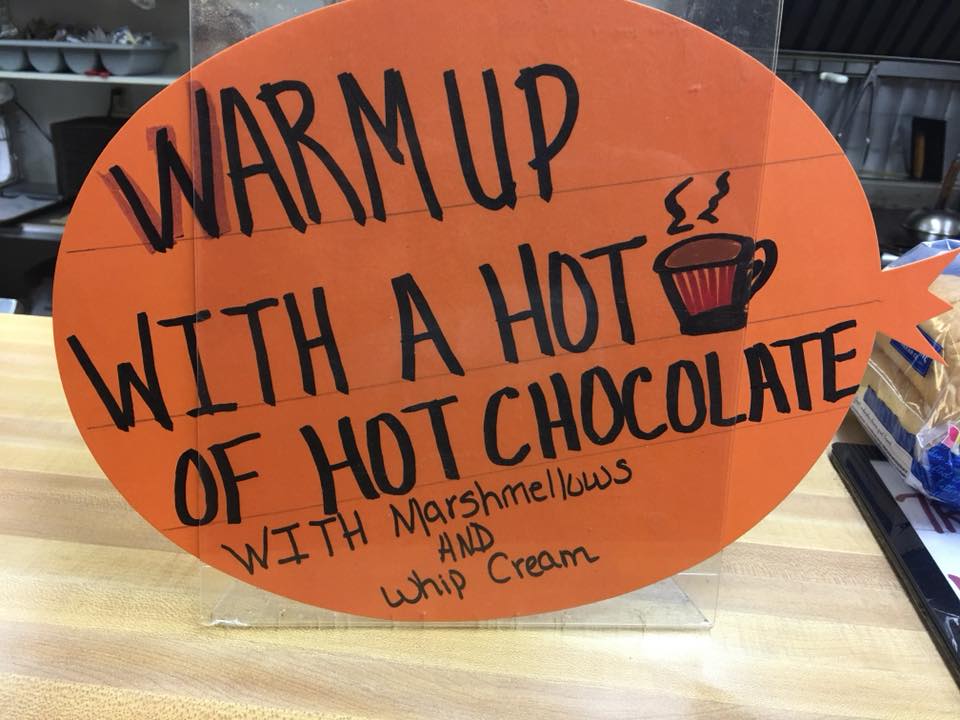 WARM UP
WITH A HOT
OF HOT CHOCOLATE
WITH Marshmellows
AND
Whip Cream